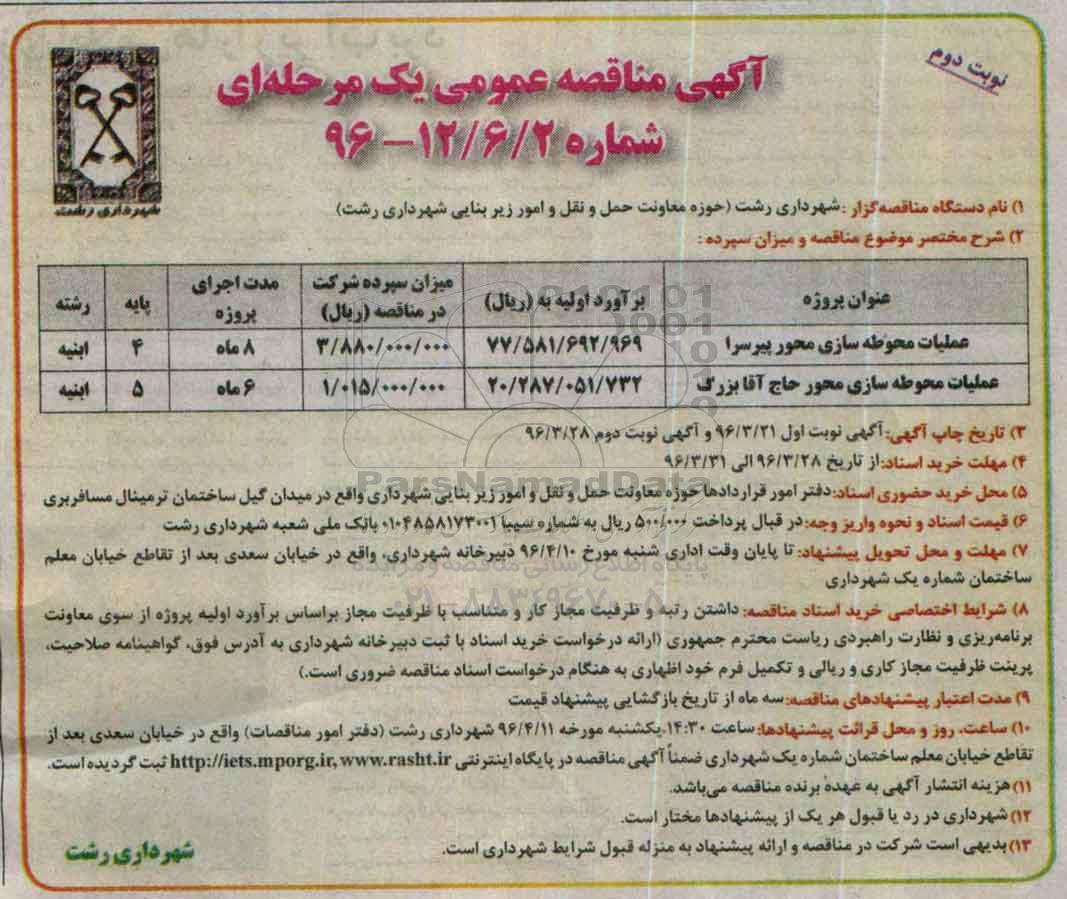 نوبت دوم
آگهی مناقصه عمومی یک مرحله‌ای
شماره ۱۲/۶/۲–۹۶
شهرداری رشت
۱) نام دستگاه مناقصه‌گزار: شهرداری رشت (حوزه معاونت حمل و نقل و امور زیر بنایی شهرداری رشت)
۲) شرح مختصر موضوع مناقصه و میزان سپرده:
عنوان پروژه | برآورد اولیه به (ریال) | میزان سپرده شرکت در مناقصه (ریال) | مدت اجرای پروژه | پایه | رشته
عملیات محوطه سازی محور پیرسرا | ۷۷/۵۸۱/۶۹۲/۹۶۹ | ۳/۸۸۰/۰۰۰/۰۰۰ | ۸ ماه | ۴ | ابنیه
عملیات محوطه سازی محور حاج آقا بزرگ | ۲۰/۲۸۷/۰۵۱/۷۳۲ | ۱/۰۱۵/۰۰۰/۰۰۰ | ۶ ماه | ۵ | ابنیه
۳) تاریخ چاپ آگهی: آگهی نوبت اول ۹۶/۳/۲۱ و آگهی نوبت دوم ۹۶/۳/۲۸
۴) مهلت خرید اسناد: از تاریخ ۹۶/۳/۲۸ الی ۹۶/۳/۳۱
ParsNamadData
۵) محل خرید حضوری اسناد: دفتر امور قراردادها حوزه معاونت حمل و نقل و امور زیر بنایی شهرداری واقع در میدان گیل ساختمان ترمینال مسافربری
۶) قیمت اسناد و نحوه واریز وجه: در قبال پرداخت ۵۰۰/۰۰۰ ریال به شماره سیبا ۰۱۰۴۸۵۸۱۷۳۰۰۱ بانک ملی شعبه شهرداری رشت
۷) مهلت و محل تحویل پیشنهاد: تا پایان وقت اداری شنبه مورخ ۹۶/۴/۱۰ دبیرخانه شهرداری، واقع در خیابان سعدی بعد از تقاطع خیابان معلم
ساختمان شماره یک شهرداری
پایگاه اطلاع رسانی مناقصه و مزایده
۸) شرایط اختصاصی خرید اسناد مناقصه: داشتن رتبه و ظرفیت مجاز کار و متناسب با ظرفیت مجاز براساس برآورد اولیه پروژه از سوی معاونت
برنامه‌ریزی و نظارت راهبردی ریاست محترم جمهوری (ارائه درخواست خرید اسناد با ثبت دبیرخانه شهرداری به آدرس فوق، گواهینامه صلاحیت،
پرینت ظرفیت مجاز کاری و ریالی و تکمیل فرم خود اظهاری به هنگام درخواست اسناد مناقصه ضروری است.)
۹) مدت اعتبار پیشنهادهای مناقصه: سه ماه از تاریخ بازگشایی پیشنهاد قیمت
۱۰) ساعت، روز و محل قرائت پیشنهادها: ساعت ۱۴:۳۰ یکشنبه مورخه ۹۶/۴/۱۱ شهرداری رشت (دفتر امور مناقصات) واقع در خیابان سعدی بعد از
تقاطع خیابان معلم ساختمان شماره یک شهرداری ضمناً آگهی مناقصه در پایگاه اینترنتی http://iets.mporg.ir, www.rasht.ir ثبت گردیده است.
۱۱) هزینه انتشار آگهی به عهده برنده مناقصه می‌باشد.
۱۲) شهرداری در رد یا قبول هر یک از پیشنهادها مختار است.
۱۳) بدیهی است شرکت در مناقصه و ارائه پیشنهاد به منزله قبول شرایط شهرداری است.
شهرداری رشت